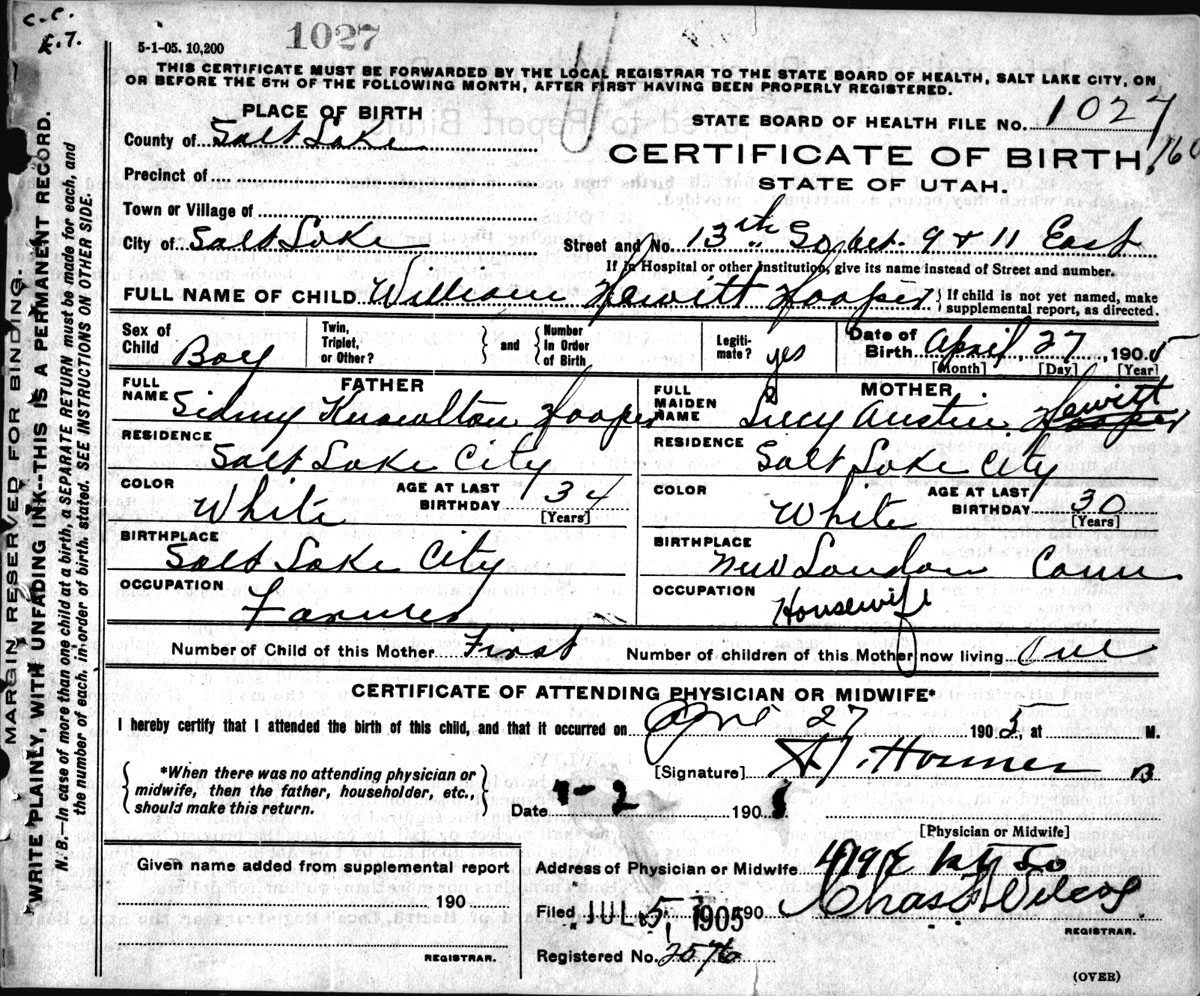 C.C.
5-1-05. 10,200
1027
THIS CERTIFICATE MUST BE FORWARDED BY THE LOCAL REGISTRAR TO THE STATE BOARD OF HEALTH, SALT LAKE CITY, ON
OR BEFORE THE 5TH OF THE FOLLOWING MONTH, AFTER FIRST HAVING BEEN PROPERLY REGISTERED.
PLACE OF BIRTH
STATE BOARD OF HEALTH FILE No. 1027
County of Salt Lake
CERTIFICATE OF BIRTH
160
Precinct of
STATE OF UTAH.
Town or Village of
City of Salt Lake
Street and No. 13th So. bet. 9 & 11 East
If In Hospital or other Institution, give its name instead of Street and number.
FULL NAME OF CHILD William Hewitt Hooper
If child is not yet named, make
supplemental report, as directed.
Sex of
Child Boy
Twin,
Triplet,
or Other?
and
Number
In Order
of Birth
Legiti-
mate? yes
Date of
Birth April, 27, 1905
[Month] [Day] [Year]
FATHER
FULL
NAME Sidney Knowlton Hooper
RESIDENCE
Salt Lake City
COLOR White
AGE AT LAST
BIRTHDAY 34
[Years]
BIRTHPLACE
Salt Lake City
OCCUPATION
Farmer
MOTHER
FULL
MAIDEN
NAME Lucy Austin Hewitt
Hooper
RESIDENCE
Salt Lake City
COLOR White
AGE AT LAST
BIRTHDAY 30
[Years]
BIRTHPLACE
New London Conn
OCCUPATION
Housewife
Number of Child of this Mother First
Number of children of this Mother now living One
CERTIFICATE OF ATTENDING PHYSICIAN OR MIDWIFE*
I hereby certify that I attended the birth of this child, and that it occurred on April 27 1905, at M.
*When there was no attending physician or
midwife, then the father, householder, etc.,
should make this return.
[Signature]
Date 190
[Physician or Midwife]
Given name added from supplemental report
190
REGISTRAR.
Address of Physician or Midwife 419 E 1st So
Filed JUL 5, 1905 190 Chas Wilcox
REGISTRAR.
Registered No. 2576
(OVER)
MARGIN RESERVED FOR BINDING.
WRITE PLAINLY, WITH UNFADING INK--THIS IS A PERMANENT RECORD.
N. B.—In case of more than one child at a birth, a SEPARATE RETURN must be made for each, and
the number of each, in order of birth, stated. SEE INSTRUCTIONS ON OTHER SIDE.